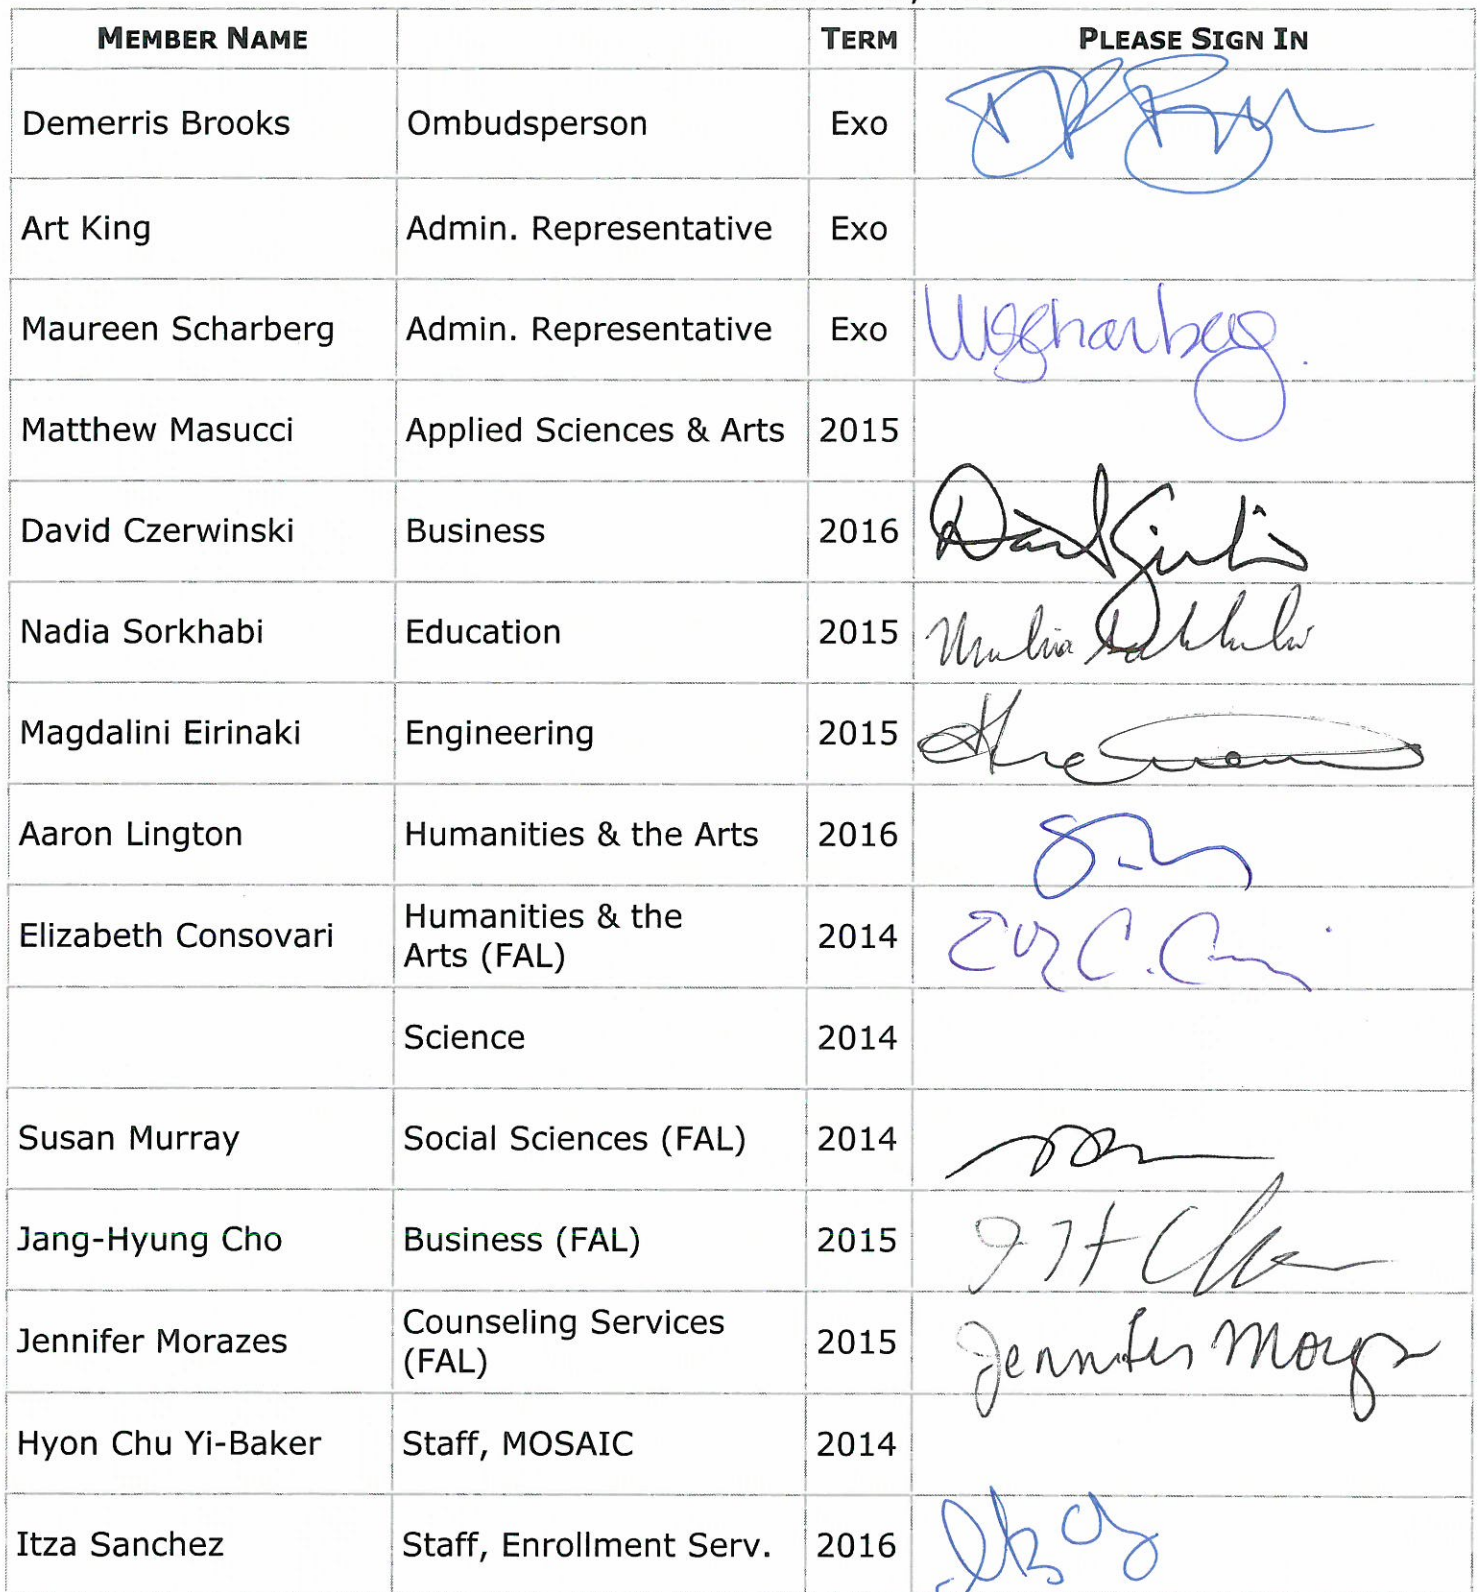 MEMBER NAME TERM PLEASE SIGN IN
Demerris Brooks Ombudsperson Exo
Art King Admin. Representative Exo
Maureen Scharberg Admin. Representative Exo
Matthew Masucci Applied Sciences & Arts 2015
David Czerwinski Business 2016
Nadia Sorkhabi Education 2015
Magdalini Eirinaki Engineering 2015
Aaron Lington Humanities & the Arts 2016
Elizabeth Consovari Humanities & the
Arts (FAL) 2014
Science 2014
Susan Murray Social Sciences (FAL) 2014
Jang-Hyung Cho Business (FAL) 2015
Jennifer Morazes Counseling Services
(FAL) 2015 Jennifer
Hyon Chu Yi-Baker Staff, MOSAIC 2014
Itza Sanchez Staff, Enrollment Serv. 2016